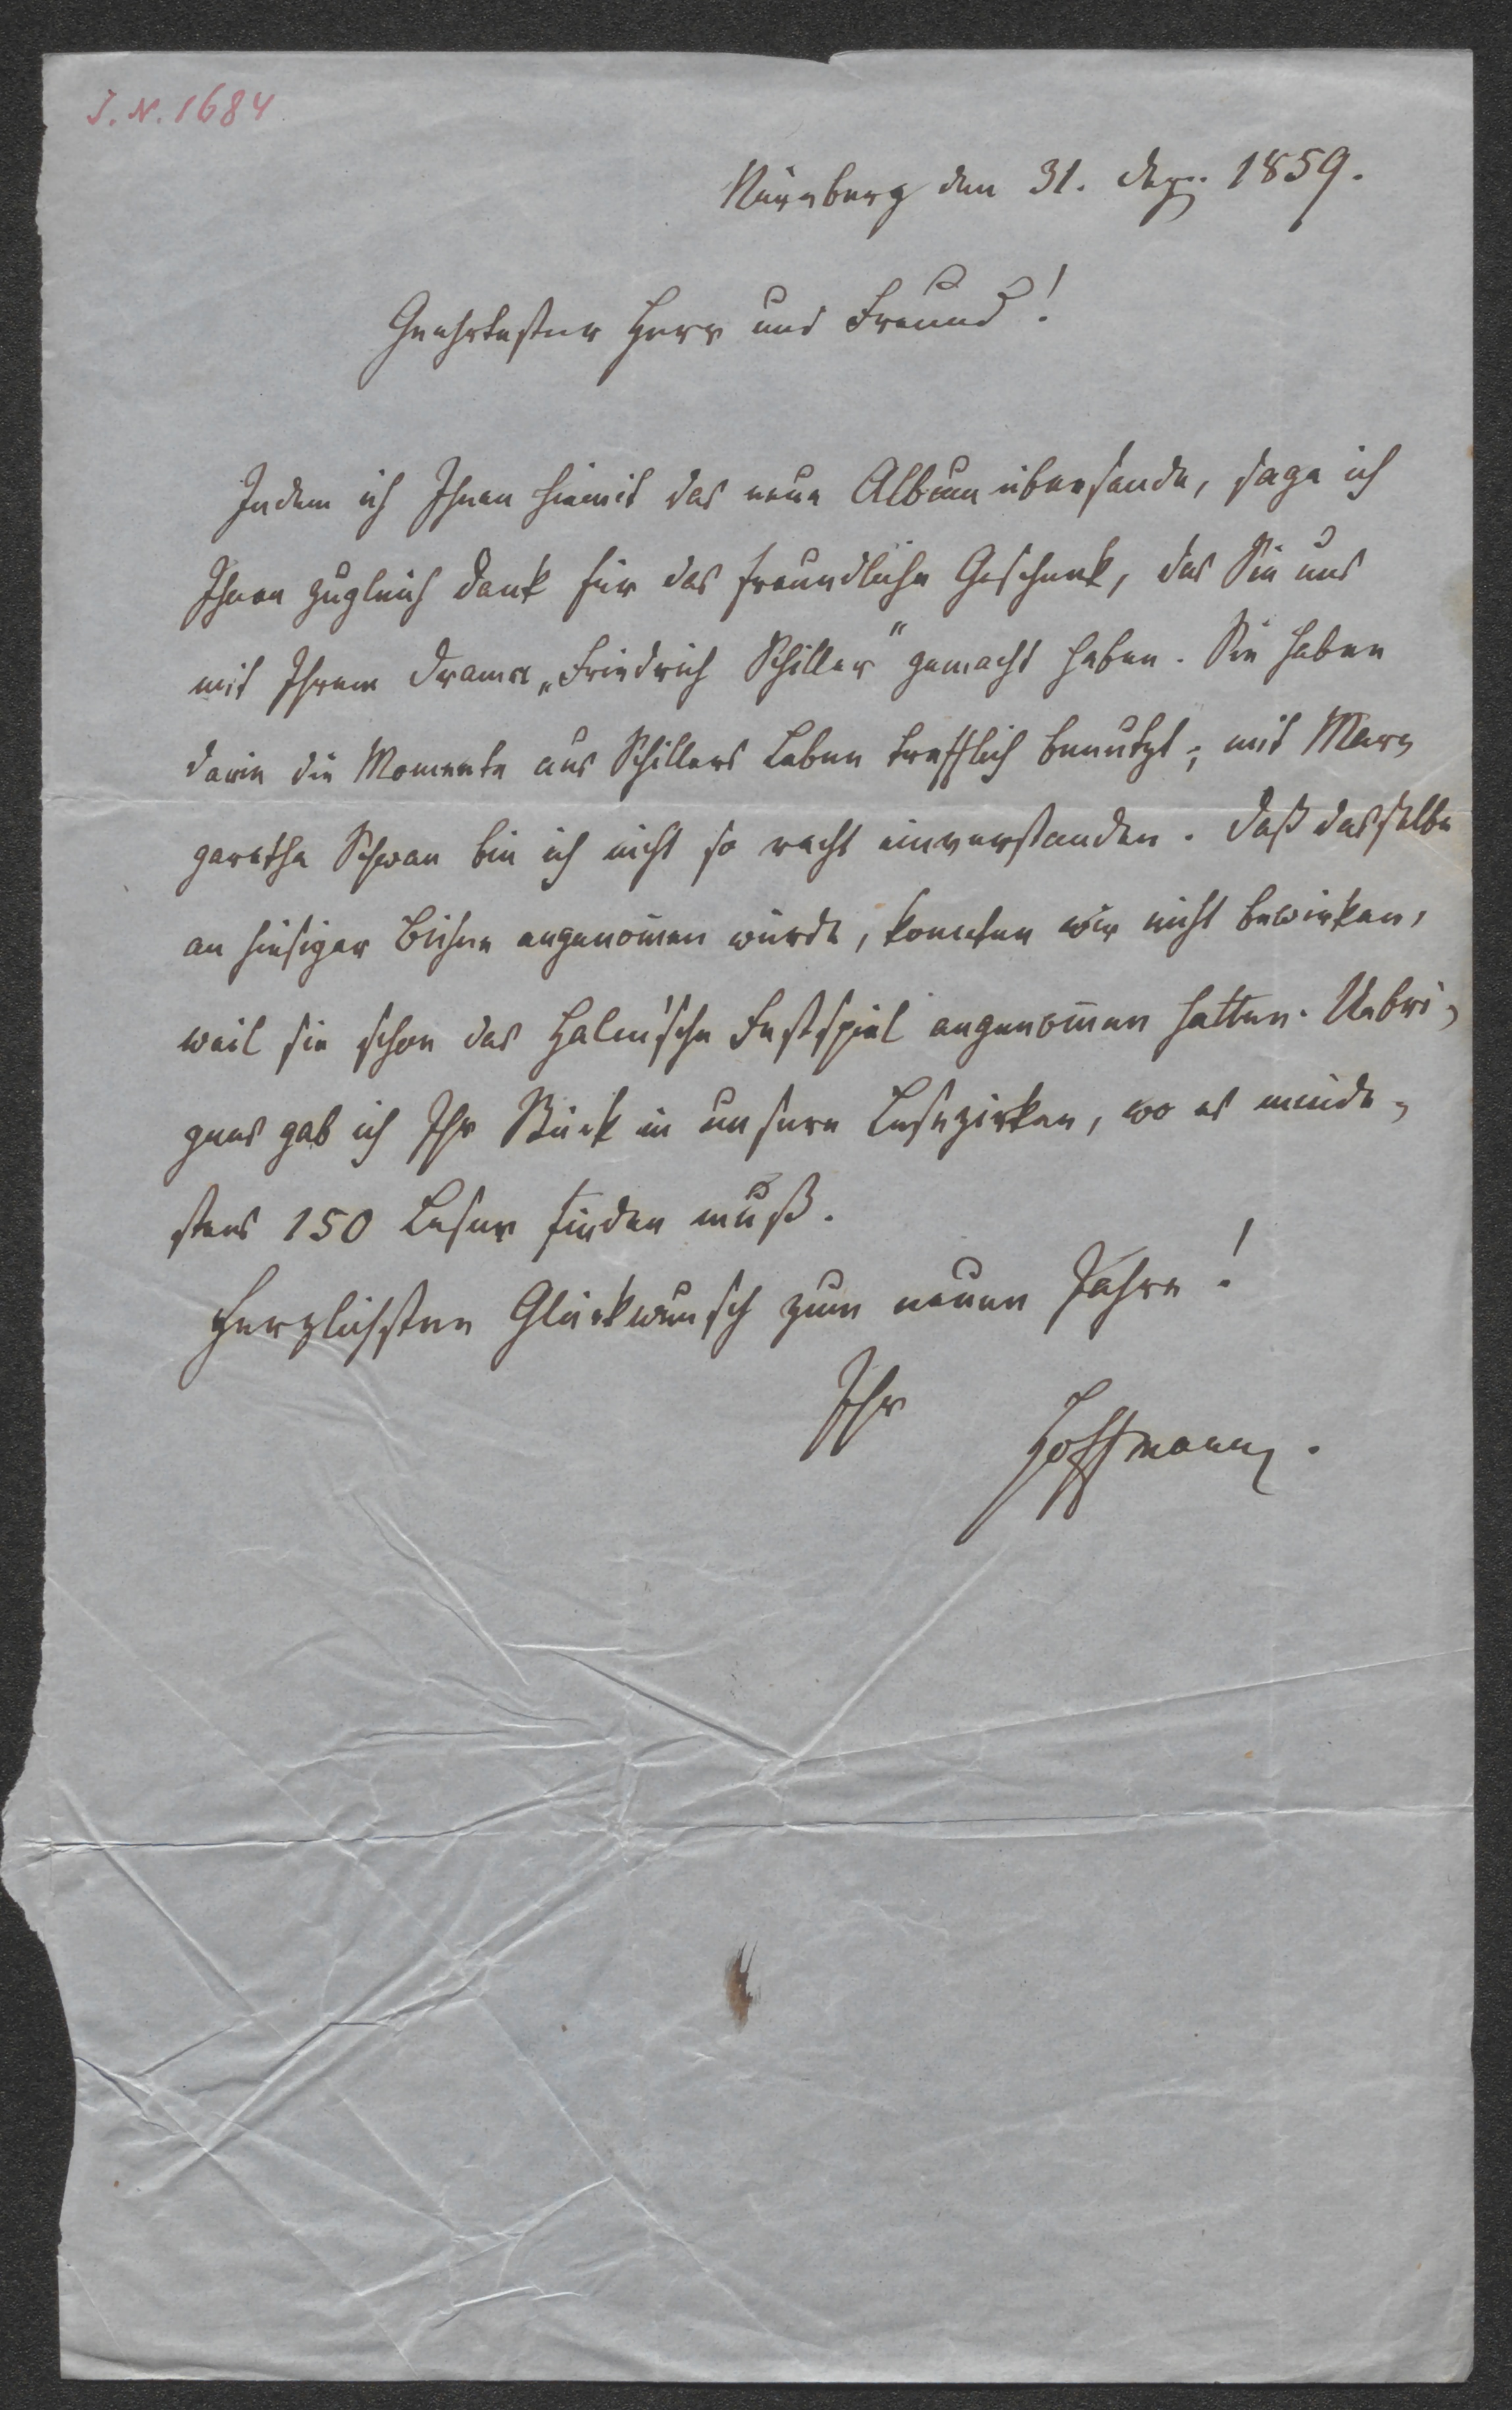 I. N. 1684
Nürnberg den 31. Dez. 1859.
Geehrtester Herr und Freund!
Indem ich Ihnen hiemit das neue Album übersende, sage ich
Ihnen zugleich Dank für das freundliche Geschenk, das Sie uns
mit Ihrem Drama „Friedrich Schiller" gemacht haben. Sie haben
darin die Momente aus Schillers Leben trefflich benutzt; mit Mar-
garetha Schwan bin ich nicht so recht einverstanden. Daß dasselbe
an hiesiger Bühne angenom̄en würde, konnten wir nicht bewirken,
weil sie schon das Halm'sche Festspiel angenom̄en hatten. Uebri-
gens gab ich Ihr Stück in unsern Lesezirkel, wo es minde-
stens 150 Leser finden muß.
Herzlichsten Glückwunsch zum neuen Jahre!
Ihr
Hoffmann.